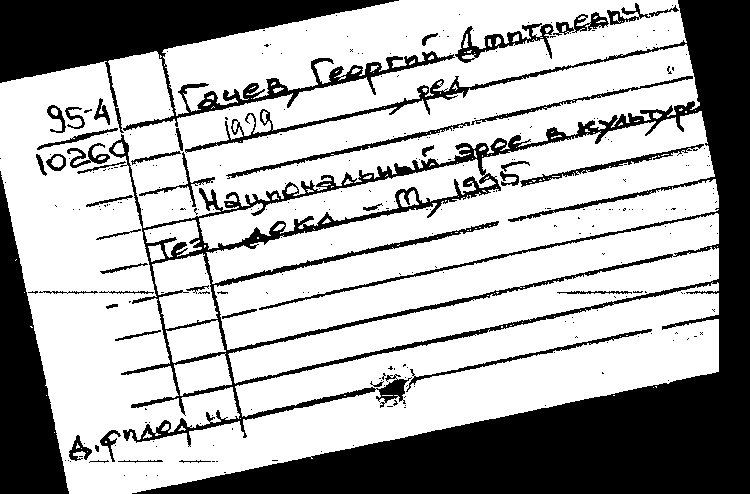 95-4
10260
Гачев, Георгий Дмитриевич
1929 , ред.
Национальный эрос в культуре
Тез. докл. - М., 1995
Д. филол. н